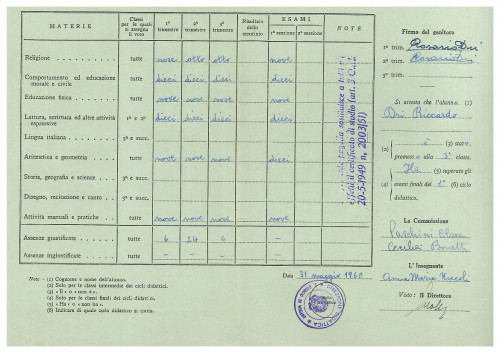 MATERIE
Classi per le quali si assegna il voto
1° trimestre
2° trimestre
3° trimestre
Risultato dello scrutinio
ESAMI
1ª sessione
2ª sessione
NOTE
Religione tutte nove otto otto nove
Comportamento ed educazione morale e civile tutte dieci dieci dieci dieci
Educazione fisica tutte nove nove nove nove
Lettura, scrittura ed altre attività espressive 1ª e 2ª dieci dieci dieci dieci
Lingua italiana 3ª e succ.
Aritmetica e geometria tutte nove nove nove dieci
Storia, geografia e scienze 3ª e succ.
Disegno, recitazione e canto 3ª e succ.
Attività manuali e pratiche tutte nove nove nove nove
Assenze giustificate tutte 6 24 6 –
Assenze ingiustificate tutte – – – –
sostituisce a tutti gli
effetti il certificato di studio (art. 3
20-5-1949 n. 2003/51)
Note - (1) Cognome e nome dell'alunno.
(2) Solo per le classi intermedie dei cicli didattici.
(3) « È » o « non è ».
(4) Solo per le classi finali dei cicli didattici.
(5) « Ha » o « non ha ».
(6) Indicare di quale ciclo didattico si tratta.
Data 31 maggio 1960
Firma del genitore
1° trim.
2° trim.
3° trim.
Si attesta che l'alunno (1)
Riccardo
(2) è (3) stato
promosso alla 2ª classe.
(4) Ha (5) superato gli
esami finali del 1° (6) ciclo
didattico.
La Commissione
Cecilia
L'Insegnante
Anna Maria
Visto: Il Direttore